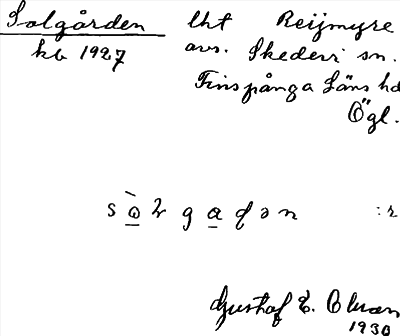 Solgården lht Reijmyre
kb 1927 avs. Skedevi sn.
Finspånga Läns hd
Ögl.
:r
Gustaf E.
1930